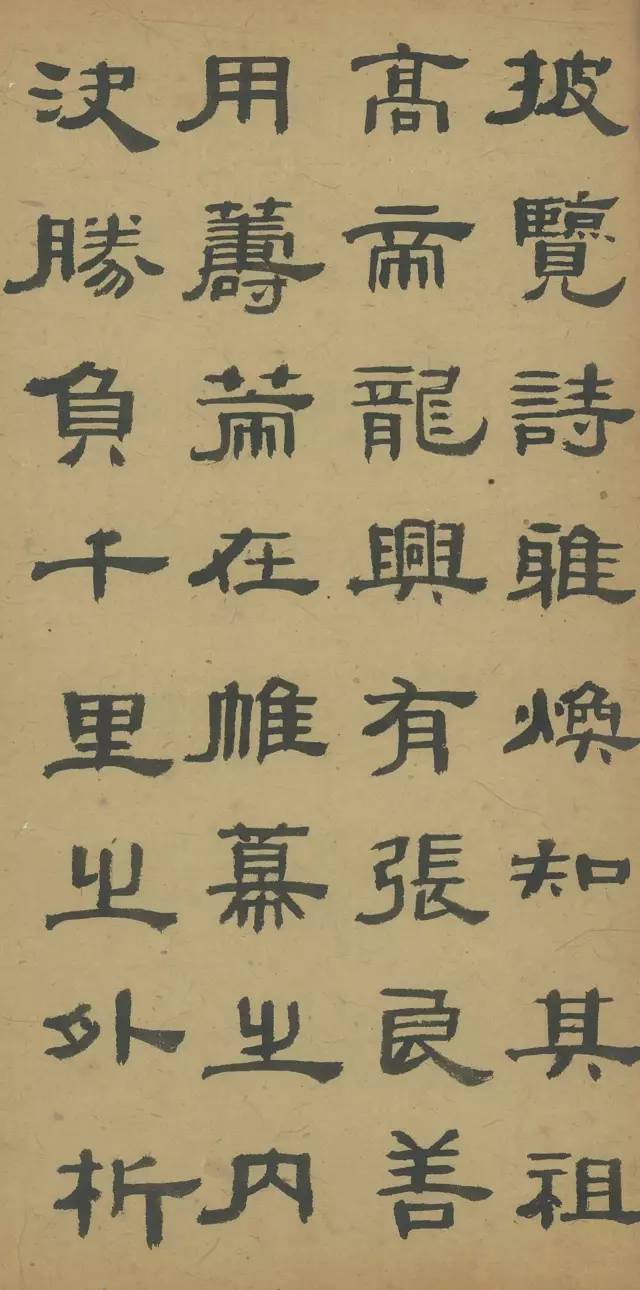 披覽詩雅煥知其祖
高帝龍興有張良善
用籌策在帷幕之內
決勝負千里之外析